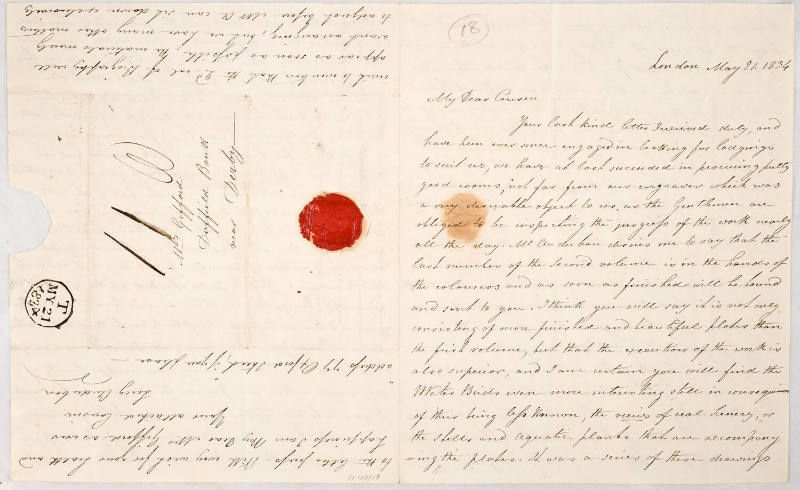 18
London May 21. 1834
My Dear Cousin
Your last kind letter I received duly, and
have been ever since engaged in looking for lodgings
to suit us, we have at last succeeded in procuring pretty
good rooms, not far from our engraver which was
a very desirable object to us, as the Gentlemen are
obliged to be inspecting the progress of the work nearly
all the day. Mr Audubon desires me to say that the
last number of the Second volume is in the hands of
the colourers and as soon as finished will be bound
and sent to you. I think you will say it is not only
consisting of more finished and beautiful plates than
the first volume, but that the execution of the work is
also superior, and I am certain you will find the
Water Birds even more interesting still in consequen=
of their being less known, the views of real Scenery, or
the Shells and aquatic plants that are accompany
=ing the plates. It was a series of these drawings
omit to mention that the 2d vol of Biography will
appear as soon as possible, the materials nearly
await arranging, but we have many other matters
to adjust before Mr A can sit down exclusively
to the letter press. With every wish for your health and
happiness I am My Dear Mrs Gifford as ever
Your attached Cousin
Lucy Audubon
"address 73 Oxford Street, if you please"
11
Mrs Gifford
Duffield Bank
near Derby
T
MY 21
1834